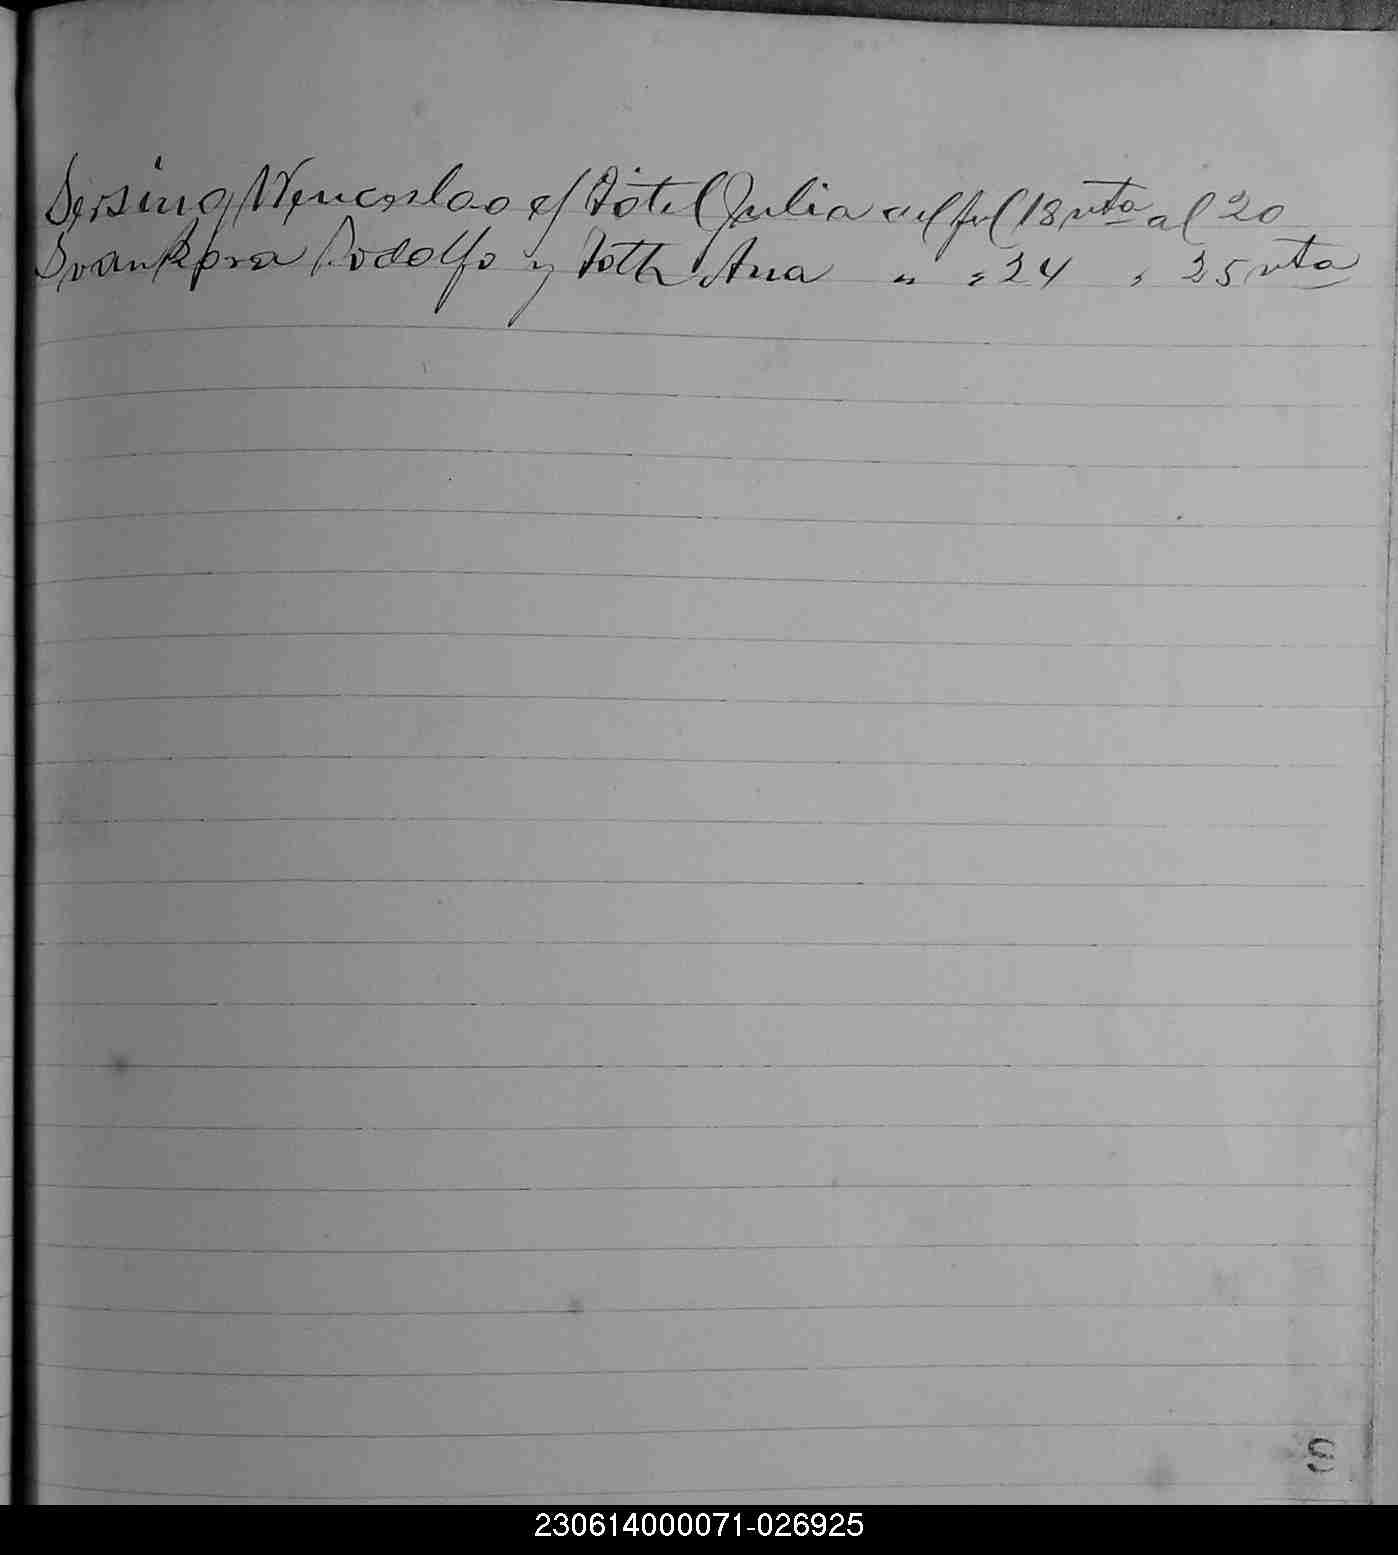 Sersing Wenceslao c/ Vötel Julia del fol 18 vta al 20
Svankosa Rodolfo y Toth Ana " " 24 " 25 vta
S
230614000071-026925